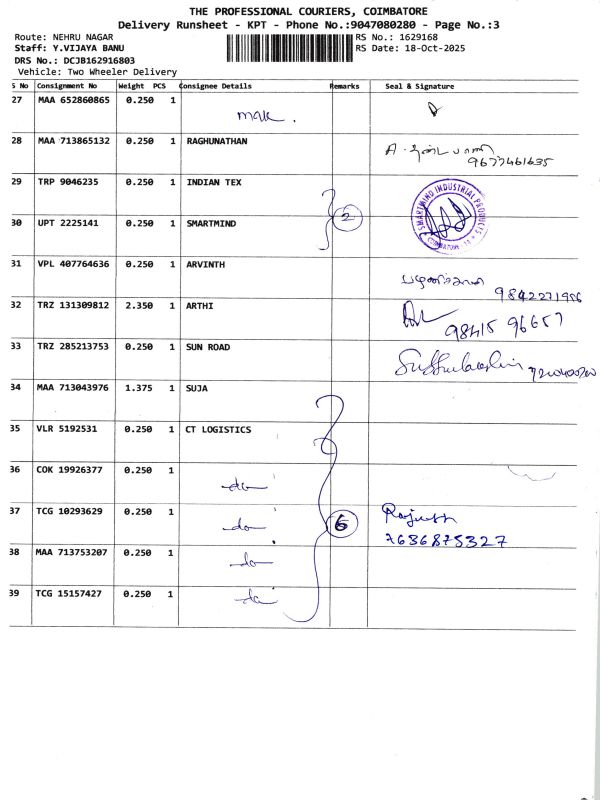 THE PROFESSIONAL COURIERS, COIMBATORE
Delivery Runsheet - KPT - Phone No.:9047080280 - Page No.:3
Route: NEHRU NAGAR
RS No.: 1629168
Staff: Y.VIJAYA BANU
RS Date: 18-Oct-2025
DRS No.: DCJB162916803
Vehicle: Two Wheeler Delivery
S No Consignment No Weight PCS Consignee Details Remarks Seal & Signature
27 MAA 652860865 0.250 1
28 MAA 713865132 0.250 1 RAGHUNATHAN
9677461635
29 TRP 9046235 0.250 1 INDIAN TEX
SMARTMIND INDUSTRIAL PRODUCTS
2
30 UPT 2225141 0.250 1 SMARTMIND
31 VPL 407764636 0.250 1 ARVINTH
9842271956
32 TRZ 131309812 2.350 1 ARTHI
98415 96657
33 TRZ 285213753 0.250 1 SUN ROAD
34 MAA 713043976 1.375 1 SUJA
35 VLR 5192531 0.250 1 CT LOGISTICS
36 COK 19926377 0.250 1 do
37 TCG 10293629 0.250 1 do 6
7636875327
38 MAA 713753207 0.250 1 do
39 TCG 15157427 0.250 1 do